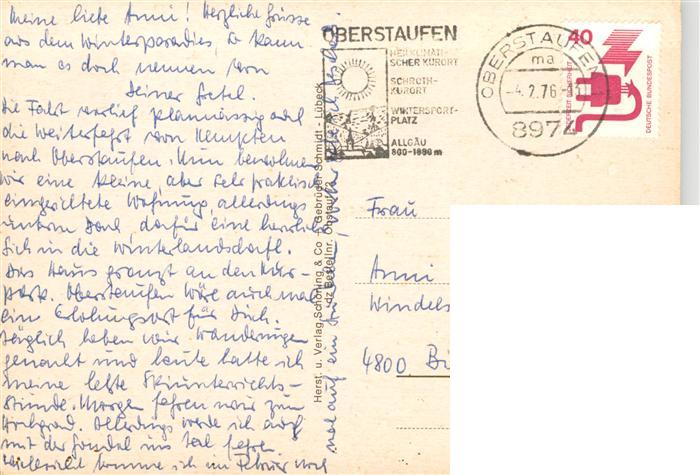 Meine liebe Anni! Herzliche Grüsse
aus dem Winterparadies, so kann
man es doch nennen von
Deiner Gretel.
Die Fahrt verlief planmässig und
die Weiterfahrt von Kempten
nach Oberstaufen. Nun bewohnen
wir eine kleine, aber sehr praktisch
eingerichtete Wohnung, allerdings
unterm Dach, dafür eine herrliche
Sich in die Winterlandschaft.
Das Haus grenzt an den Kur-
park. Oberstaufen wäre auch mal
eine Erholungsort für Dich.
Täglich haben wir Wanderungen
gemacht und heute hatte ich
meine letzte Skiunterrichts-
stunde. Morgen fahren wir zum
Hochgrad. Allerdings werde ich auch
mit der Gondel ins Tal fahren
vielleicht komme ich im Februar noch
mal auf ein
Herst. u. Verlag Schöning & Co + Gebrüder Schmidt - Lübeck
Bestellnr. Obstauf
OBERSTAUFEN
HEILKLIMATI-
SCHER KURORT
SCHROTH-
KURORT
WINTERSPORT-
PLATZ
ALLGÄU
800-1880 m
OBERSTAUFEN
ma
-4.2.76-
8974
40
JEDERZEIT SICHERHEIT
DEUTSCHE BUNDESPOST
Frau
Anni
Windels
4800 Bi